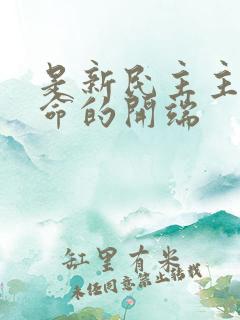 是新民主主
命的开端
缸里有米
未经同意禁止转载